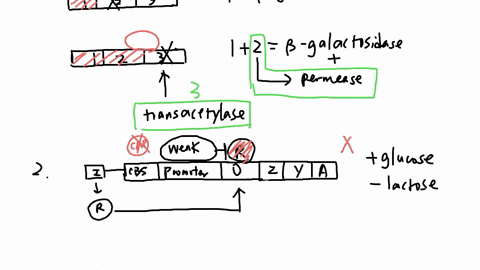 1 2 3
1 2 3
1 + 2 = β-galactosidase
+
permease
3
transacetylase
CAP weak R X
2. I CBS Promoter O Z Y A + glucose
- lactose
R